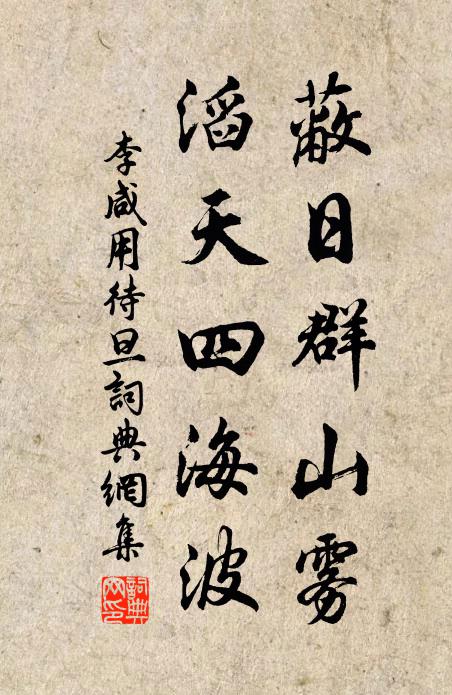 蔽日群山雾
滔天四海波
李咸用待旦詞典網集
詞典网印